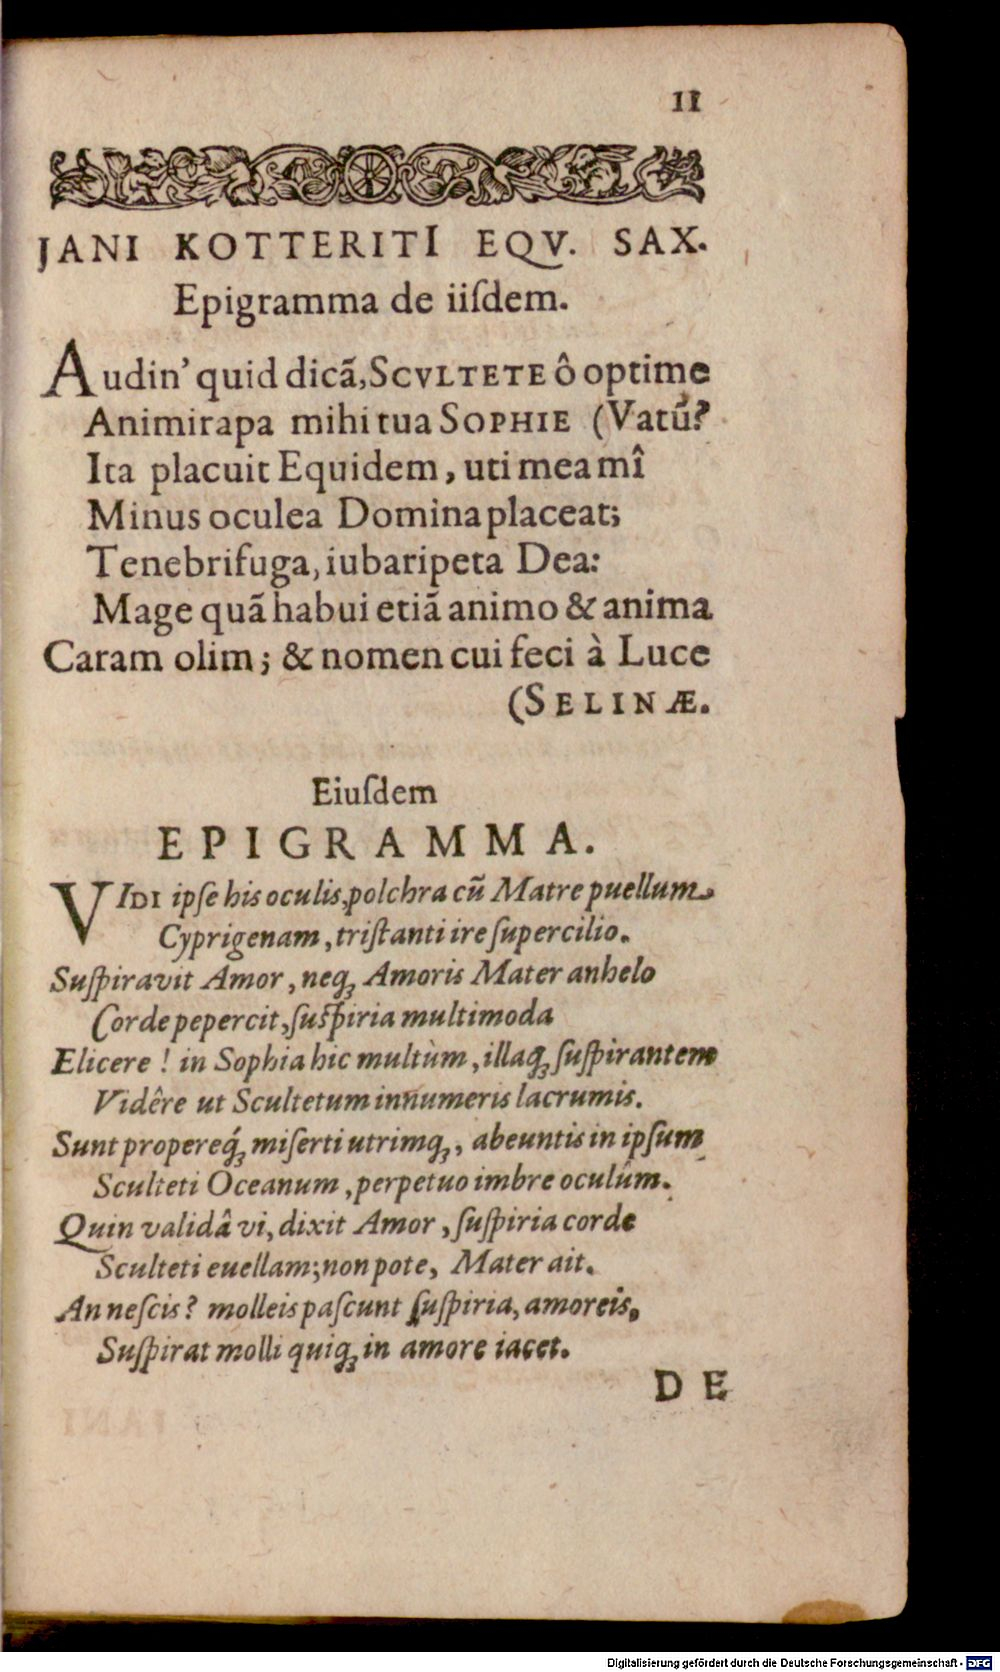 11
JANI KOTTERITI EQV. SAX.
Epigramma de iiſdem.
Audin' quid dicã, SCVLTETE ô optime
Animirapa mihi tua SOPHIE (Vatũ?
Ita placuit Equidem, uti mea mî
Minus oculea Domina placeat;
Tenebrifuga, iubaripeta Dea:
Mage quã habui etiã animo & anima
Caram olim; & nomen cui feci à Luce
(SELINÆ.
Eiuſdem
EPIGRAMMA.
VIDI ipſe his oculis, polchra cũ Matre puellum
Cyprigenam, triſtanti ire ſupercilio.
Suſpiravit Amor, neq; Amoris Mater anhelo
Corde pepercit, ſuſpiria multimoda
Elicere! in Sophia hic multùm, illaq; ſuſpirantem
Vidêre ut Scultetum innumeris lacrumis.
Sunt propereq́; miſerti utrimq;, abeuntis in ipſum
Sculteti Oceanum, perpetuo imbre oculûm.
Quin validâ vi, dixit Amor, ſuſpiria corde
Sculteti euellam; non pote, Mater ait.
An neſcis? molleis paſcunt ſuſpiria, amoreis,
Suſpirat molli quiq; in amore iacet.
DE
Digitalisierung gefördert durch die Deutsche Forschungsgemeinschaft - DFG